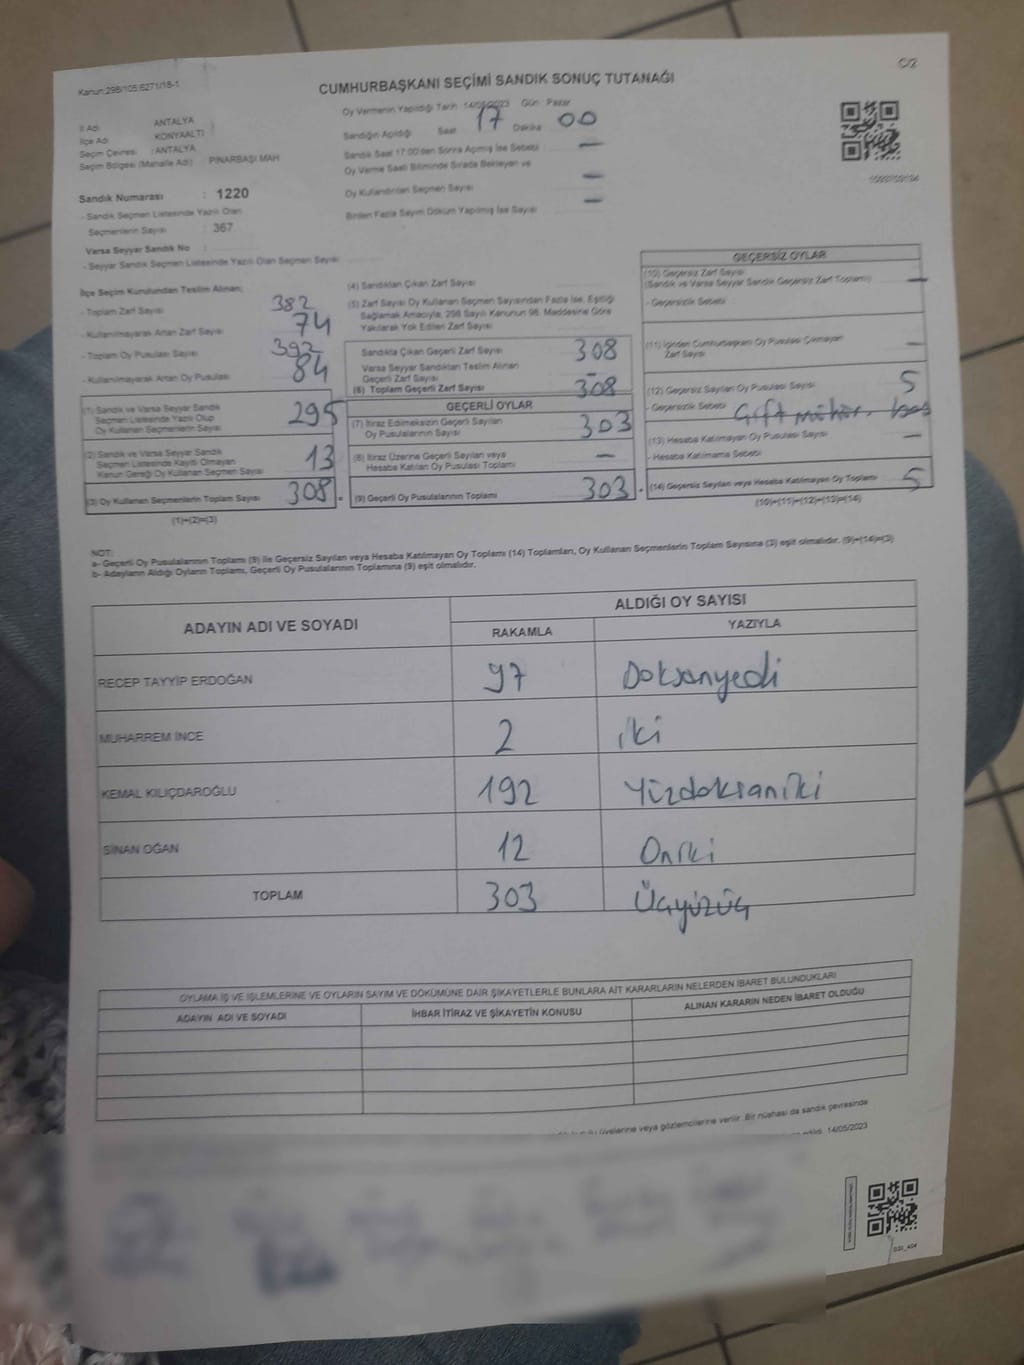 C/2
Kanun:298/105;6271/18-1
CUMHURBAŞKANI SEÇİMİ SANDIK SONUÇ TUTANAĞI
İl Adı ANTALYA
İlçe Adı KONYAALTI
Seçim Çevresi : ANTALYA
Seçim Bölgesi (Mahalle Adı) PINARBAŞI MAH
Sandık Numarası : 1220
- Sandık Seçmen Listesinde Yazılı Olan
Seçmenlerin Sayısı : 367
Varsa Seyyar Sandık No :
- Seyyar Sandık Seçmen Listesinde Yazılı Olan Seçmen Sayısı
Oy Vermenin Yapıldığı Tarih 14/05/2023 Gün Pazar
Sandığın Açıldığı Saat 17 Dakika 00
Sandık Saat 17:00'den Sonra Açılmış İse Sebebi —
Oy Verme Saati Bitiminde Sırada Bekleyen ve
Oy Kullandırılan Seçmen Sayısı —
Birden Fazla Sayım Döküm Yapılmış İse Sayısı —
İlçe Seçim Kurulundan Teslim Alınan;
- Toplam Zarf Sayısı 382
- Kullanılmayarak Artan Zarf Sayısı 74
- Toplam Oy Pusulası Sayısı 392
- Kullanılmayarak Artan Oy Pusulası 84
(1) Sandık ve Varsa Seyyar Sandık
Seçmen Listesinde Yazılı Olup
Oy Kullanan Seçmenlerin Sayısı 295
(2) Sandık ve Varsa Seyyar Sandık
Seçmen Listesinde Kayıtlı Olmayan
Kanun Gereği Oy Kullanan Seçmen Sayısı 13
(3) Oy Kullanan Seçmenlerin Toplam Sayısı 308 =
(1)+(2)=(3)
(4) Sandıktan Çıkan Zarf Sayısı
(5) Zarf Sayısı Oy Kullanan Seçmen Sayısından Fazla İse, Eşitliği
Sağlamak Amacıyla, 298 Sayılı Kanunun 98. Maddesine Göre
Yakılarak Yok Edilen Zarf Sayısı
Sandıkta Çıkan Geçerli Zarf Sayısı 308
Varsa Seyyar Sandıktan Teslim Alınan
Geçerli Zarf Sayısı —
(6) Toplam Geçerli Zarf Sayısı 308
GEÇERLİ OYLAR
(7) İtiraz Edilmeksizin Geçerli Sayılan
Oy Pusulalarının Sayısı 303
(8) İtiraz Üzerine Geçerli Sayılan veya
Hesaba Katılan Oy Pusulası Toplamı —
(9) Geçerli Oy Pusulalarının Toplamı 303 +
GEÇERSİZ OYLAR
(10) Geçersiz Zarf Sayısı
(Sandık ve Varsa Seyyar Sandık Geçersiz Zarf Toplamı) —
- Geçersizlik Sebebi
(11) İçinden Cumhurbaşkanı Oy Pusulası Çıkmayan
Zarf Sayısı —
(12) Geçersiz Sayılan Oy Pusulası Sayısı 5
- Geçersizlik Sebebi Çift mühür, boş
(13) Hesaba Katılmayan Oy Pusulası Sayısı —
- Hesaba Katılmama Sebebi
(14) Geçersiz Sayılan veya Hesaba Katılmayan Oy Toplamı 5
(10)+(11)+(12)+(13)=(14)
NOT:
a- Geçerli Oy Pusulalarının Toplamı (9) ile Geçersiz Sayılan veya Hesaba Katılmayan Oy Toplamı (14) Toplamları, Oy Kullanan Seçmenlerin Toplam Sayısına (3) eşit olmalıdır. (9)+(14)=(3)
b- Adayların Aldığı Oyların Toplamı, Geçerli Oy Pusulalarının Toplamına (9) eşit olmalıdır.
ADAYIN ADI VE SOYADI ALDIĞI OY SAYISI
RAKAMLA YAZIYLA
RECEP TAYYİP ERDOĞAN 97 Doksanyedi
MUHARREM İNCE 2 iki
KEMAL KILIÇDAROĞLU 192 Yüzdoksaniki
SİNAN OĞAN 12 Oniki
TOPLAM 303 Üçyüzüç
OYLAMA İŞ VE İŞLEMLERİNE VE OYLARIN SAYIM VE DÖKÜMÜNE DAİR ŞİKAYETLERLE BUNLARA AİT KARARLARIN NELERDEN İBARET BULUNDUKLARI
ADAYIN ADI VE SOYADI İHBAR İTİRAZ VE ŞİKAYETİN KONUSU ALINAN KARARIN NEDEN İBARET OLDUĞU
üyelerine veya gözlemcilerine verilir. Bir nüshası da sandık çevresinde
14/05/2023